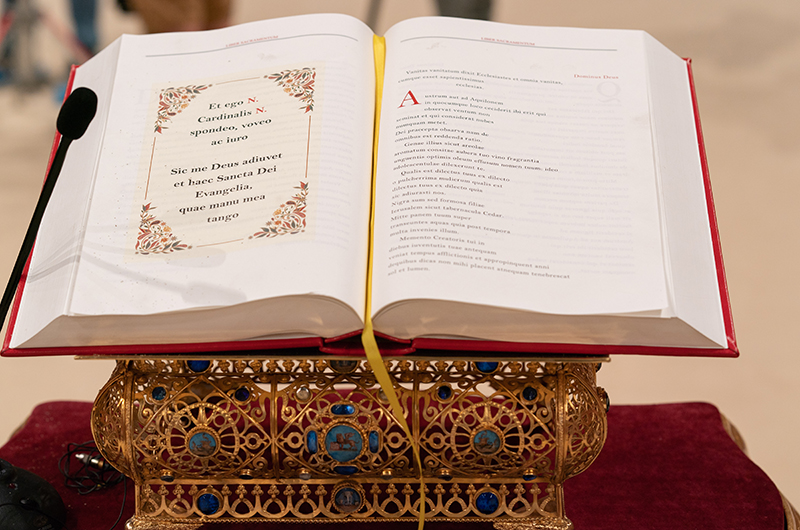 LIBER SACRAMENTUM
Et ego N.
Cardinalis N.
spondeo, voveo
ac iuro
Sic me Deus adiuvet
et haec Sancta Dei
Evangelia,
quae manu mea
tango
LIBER SACRAMENTUM
Vanitas vanitatum dixit Ecclesiastes et omnia vanitas,
cumque esset sapientissimus
ecclesias.
Dominus Deus
Austrum aut ad Aquilonem
in quocumque loco ceciderit ibi erit qui
observat ventum non
seminat et qui considerat nubes
numquam metet.
Dei praecepta observa nem de
omnibus est reddenda ratio.
Genae illius sicut areolae
aromatum consitae nabora tuo vino fragrantia
unguentis optimis oleum effusum nomen tuum; ideo
adolescentulae dilexerunt te.
Qualis est dilectus tuus ex dilecto
o pulcherrima mulierum qualis est
dilectus tuus ex dilecto quia
sic adiurasti nos.
Nigra sum sed formosa filiae
Jerusalem sicut tabernacula Cedar.
Mitte panem tuum super
transeuntes aquas quia post tempora
multa invenies illum.
Memento Creatoris tui in
diebus iuventutis tuae antequam
veniat tempus afflictionis et appropinquent anni
dequibus dicas non mihi placent antequam tenebrescat
sol et lumen.